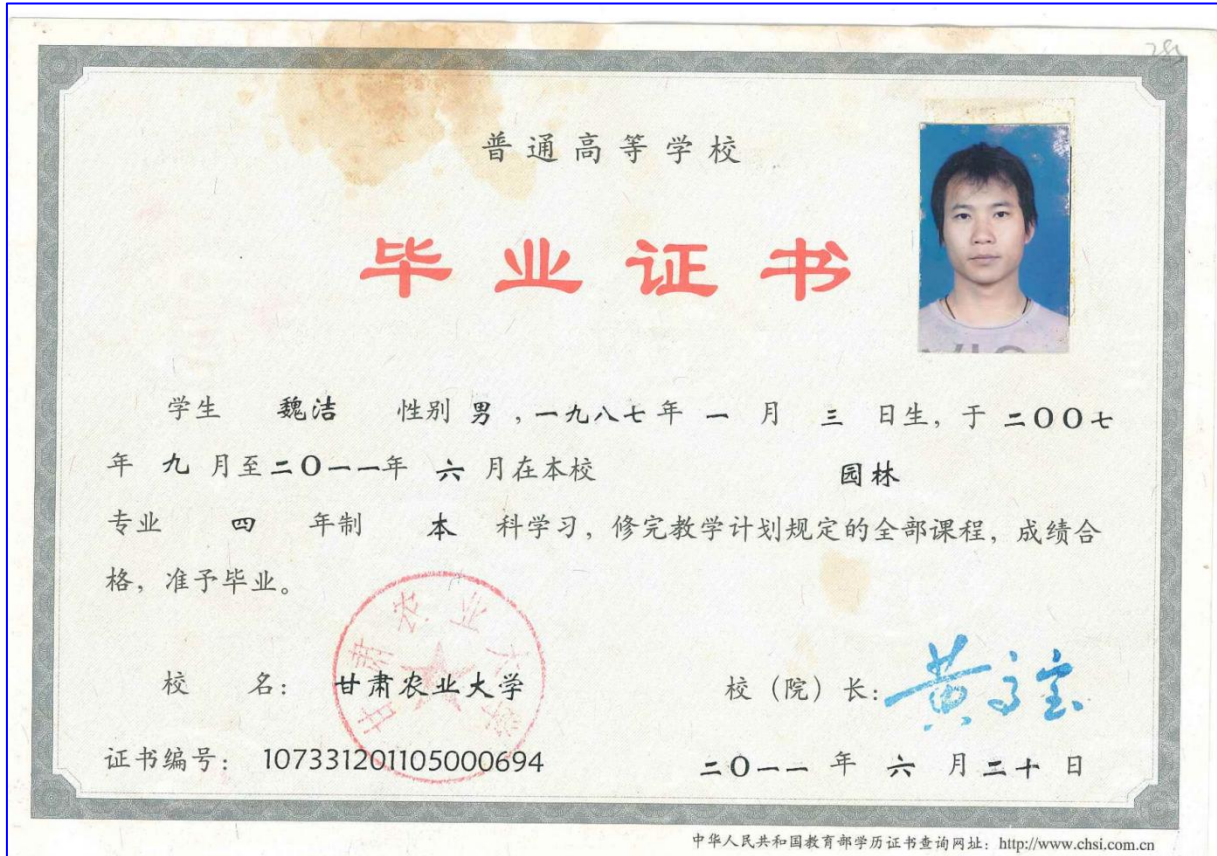 285
普通高等学校
毕业证书
学生 魏洁 性别 男 ，一九八七年 一 月 三 日生，于 二〇〇七
年 九 月至二〇一一年 六 月在本校 园林
专业 四 年制 本 科学习，修完教学计划规定的全部课程，成绩合
格，准予毕业。
甘肃农业大学
校 名： 甘肃农业大学 校（院）长：黄高宝
证书编号： 107331201105000694 二〇一一 年 六 月二十 日
中华人民共和国教育部学历证书查询网址：http://www.chsi.com.cn